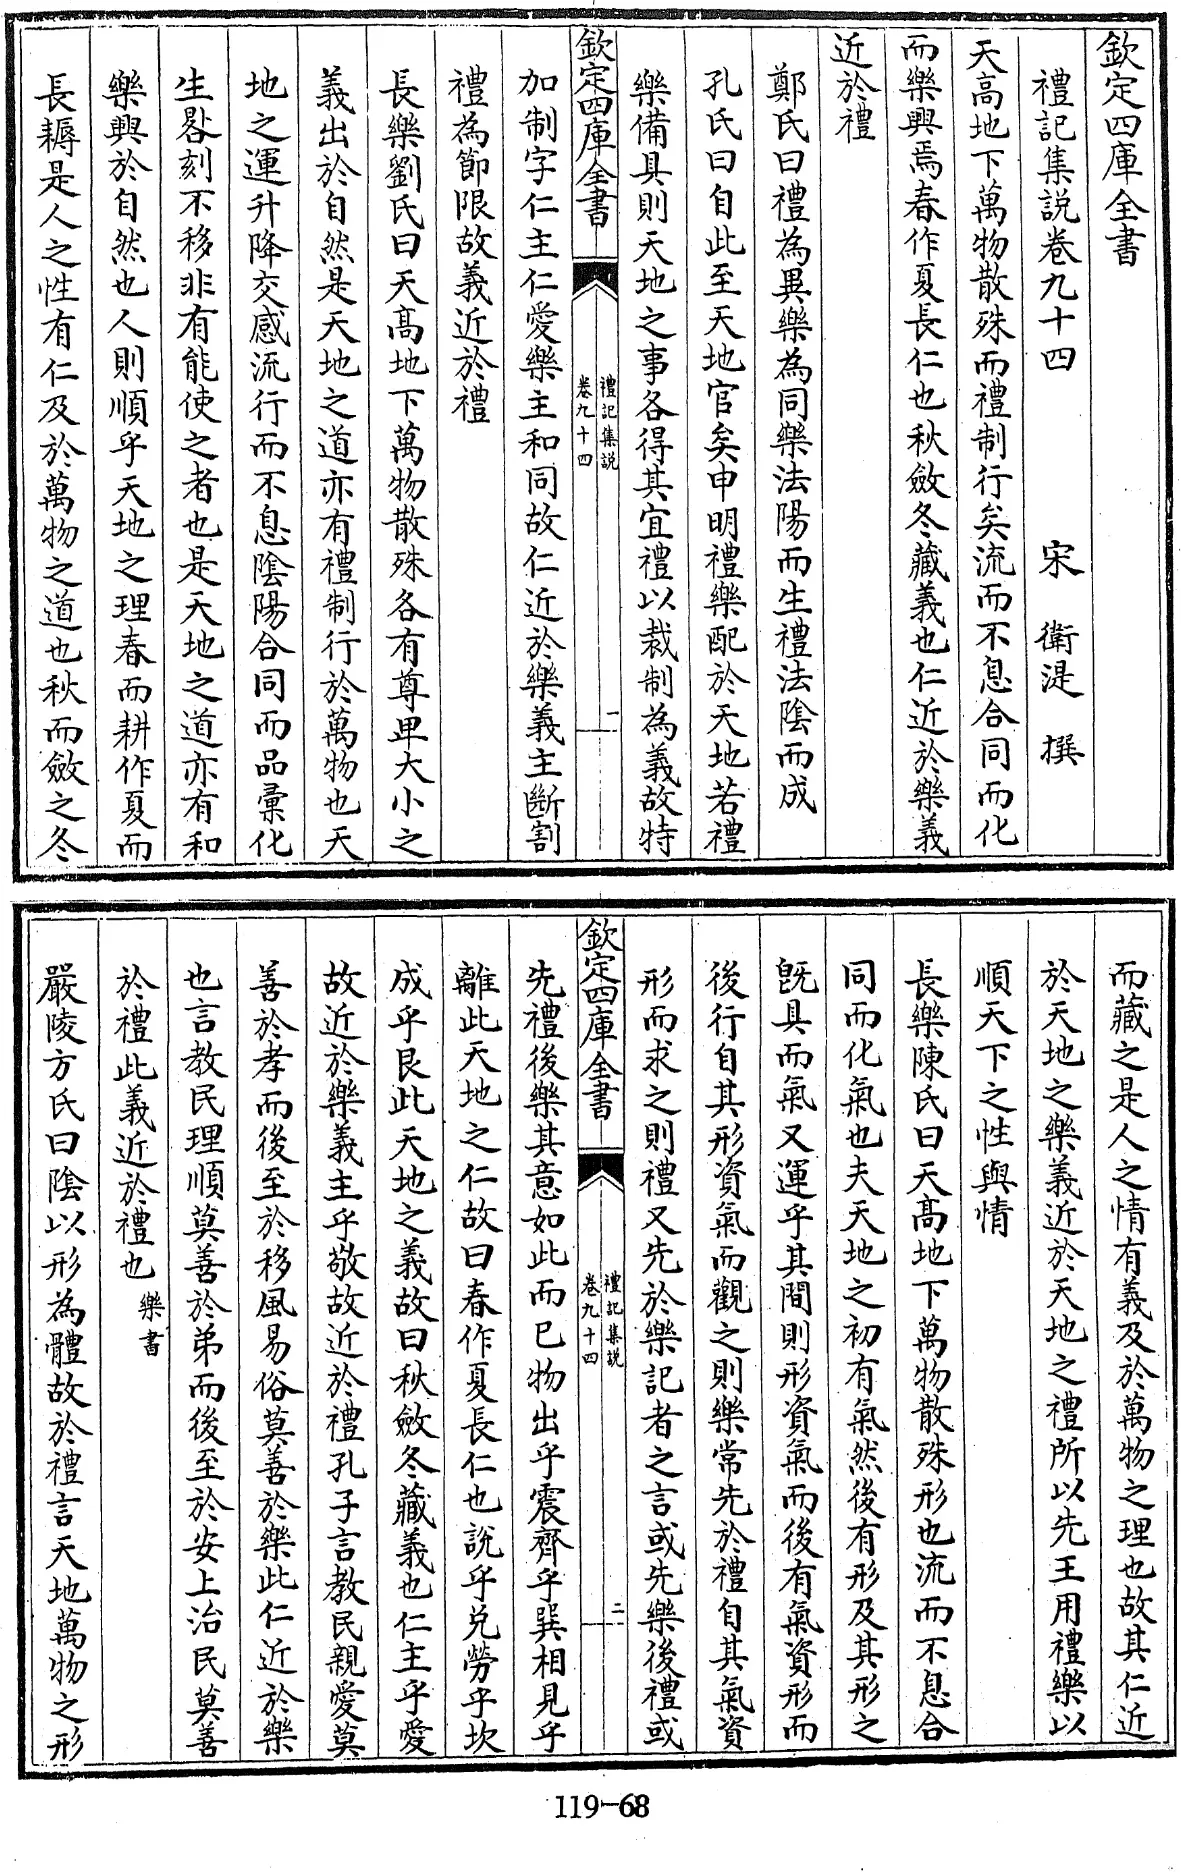 欽定四庫全書
禮記集説卷九十四　宋　衛湜　撰
天高地下萬物散殊而禮制行矣流而不息合同而化
而樂興焉春作夏長仁也秋斂冬藏義也仁近於樂義
近於禮
鄭氏曰禮為異樂為同樂法陽而生禮法陰而成
孔氏曰自此至天地官矣申明禮樂配於天地若禮
樂備具則天地之事各得其宜禮以裁制為義故特
欽定四庫全書
禮記集説
卷九十四
一
加制字仁主仁愛樂主和同故仁近於樂義主斷割
禮為節限故義近於禮
長樂劉氏曰天髙地下萬物散殊各有尊卑大小之
義出於自然是天地之道亦有禮制行於萬物也天
地之運升降交感流行而不息陰陽合同而品彚化
生晷刻不移非有能使之者也是天地之道亦有和
樂興於自然也人則順乎天地之理春而耕作夏而
長耨是人之性有仁及於萬物之道也秋而斂之冬
而藏之是人之情有義及於萬物之理也故其仁近
於天地之樂義近於天地之禮所以先王用禮樂以
順天下之性與情
長樂陳氏曰天髙地下萬物散殊形也流而不息合
同而化氣也夫天地之初有氣然後有形及其形之
既具而氣又運乎其間則形資氣而後有氣資形而
後行自其形資氣而觀之則樂常先於禮自其氣資
形而求之則禮又先於樂記者之言或先樂後禮或
欽定四庫全書
禮記集説
卷九十四
二
先禮後樂其意如此而已物出乎震齊乎巽相見乎
離此天地之仁故曰春作夏長仁也説乎兑勞乎坎
成乎艮此天地之義故曰秋斂冬藏義也仁主乎愛
故近於樂義主乎敬故近於禮孔子言教民親愛莫
善於孝而後至於移風易俗莫善於樂此仁近於樂
也言教民理順莫善於弟而後至於安上治民莫善
於禮此義近於禮也樂書
嚴陵方氏曰陰以形為體故於禮言天地萬物之形
119-68